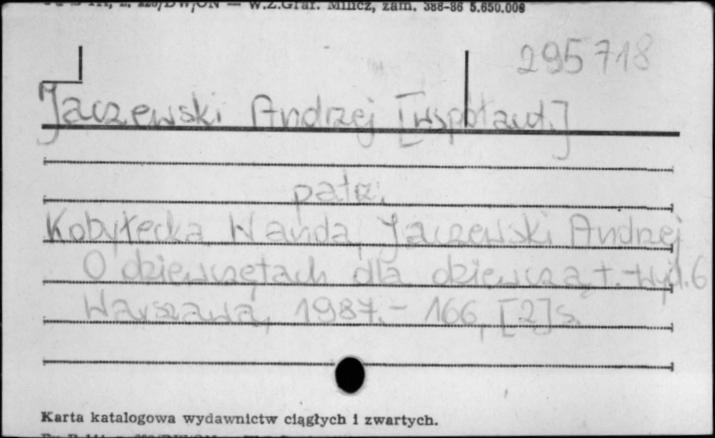 W.Z.Graf. Milicz, zam. 388-86 5.650.000
295718
Jaczewski Andrzej [współaut.]
patrz:
Kobyłecka Wanda, Jaczewski Andrzej
O dziewczętach dla dziewcząt. - Wyd. 6
Warszawa, 1987. - 166, [2] s.
Karta katalogowa wydawnictw ciągłych i zwartych.